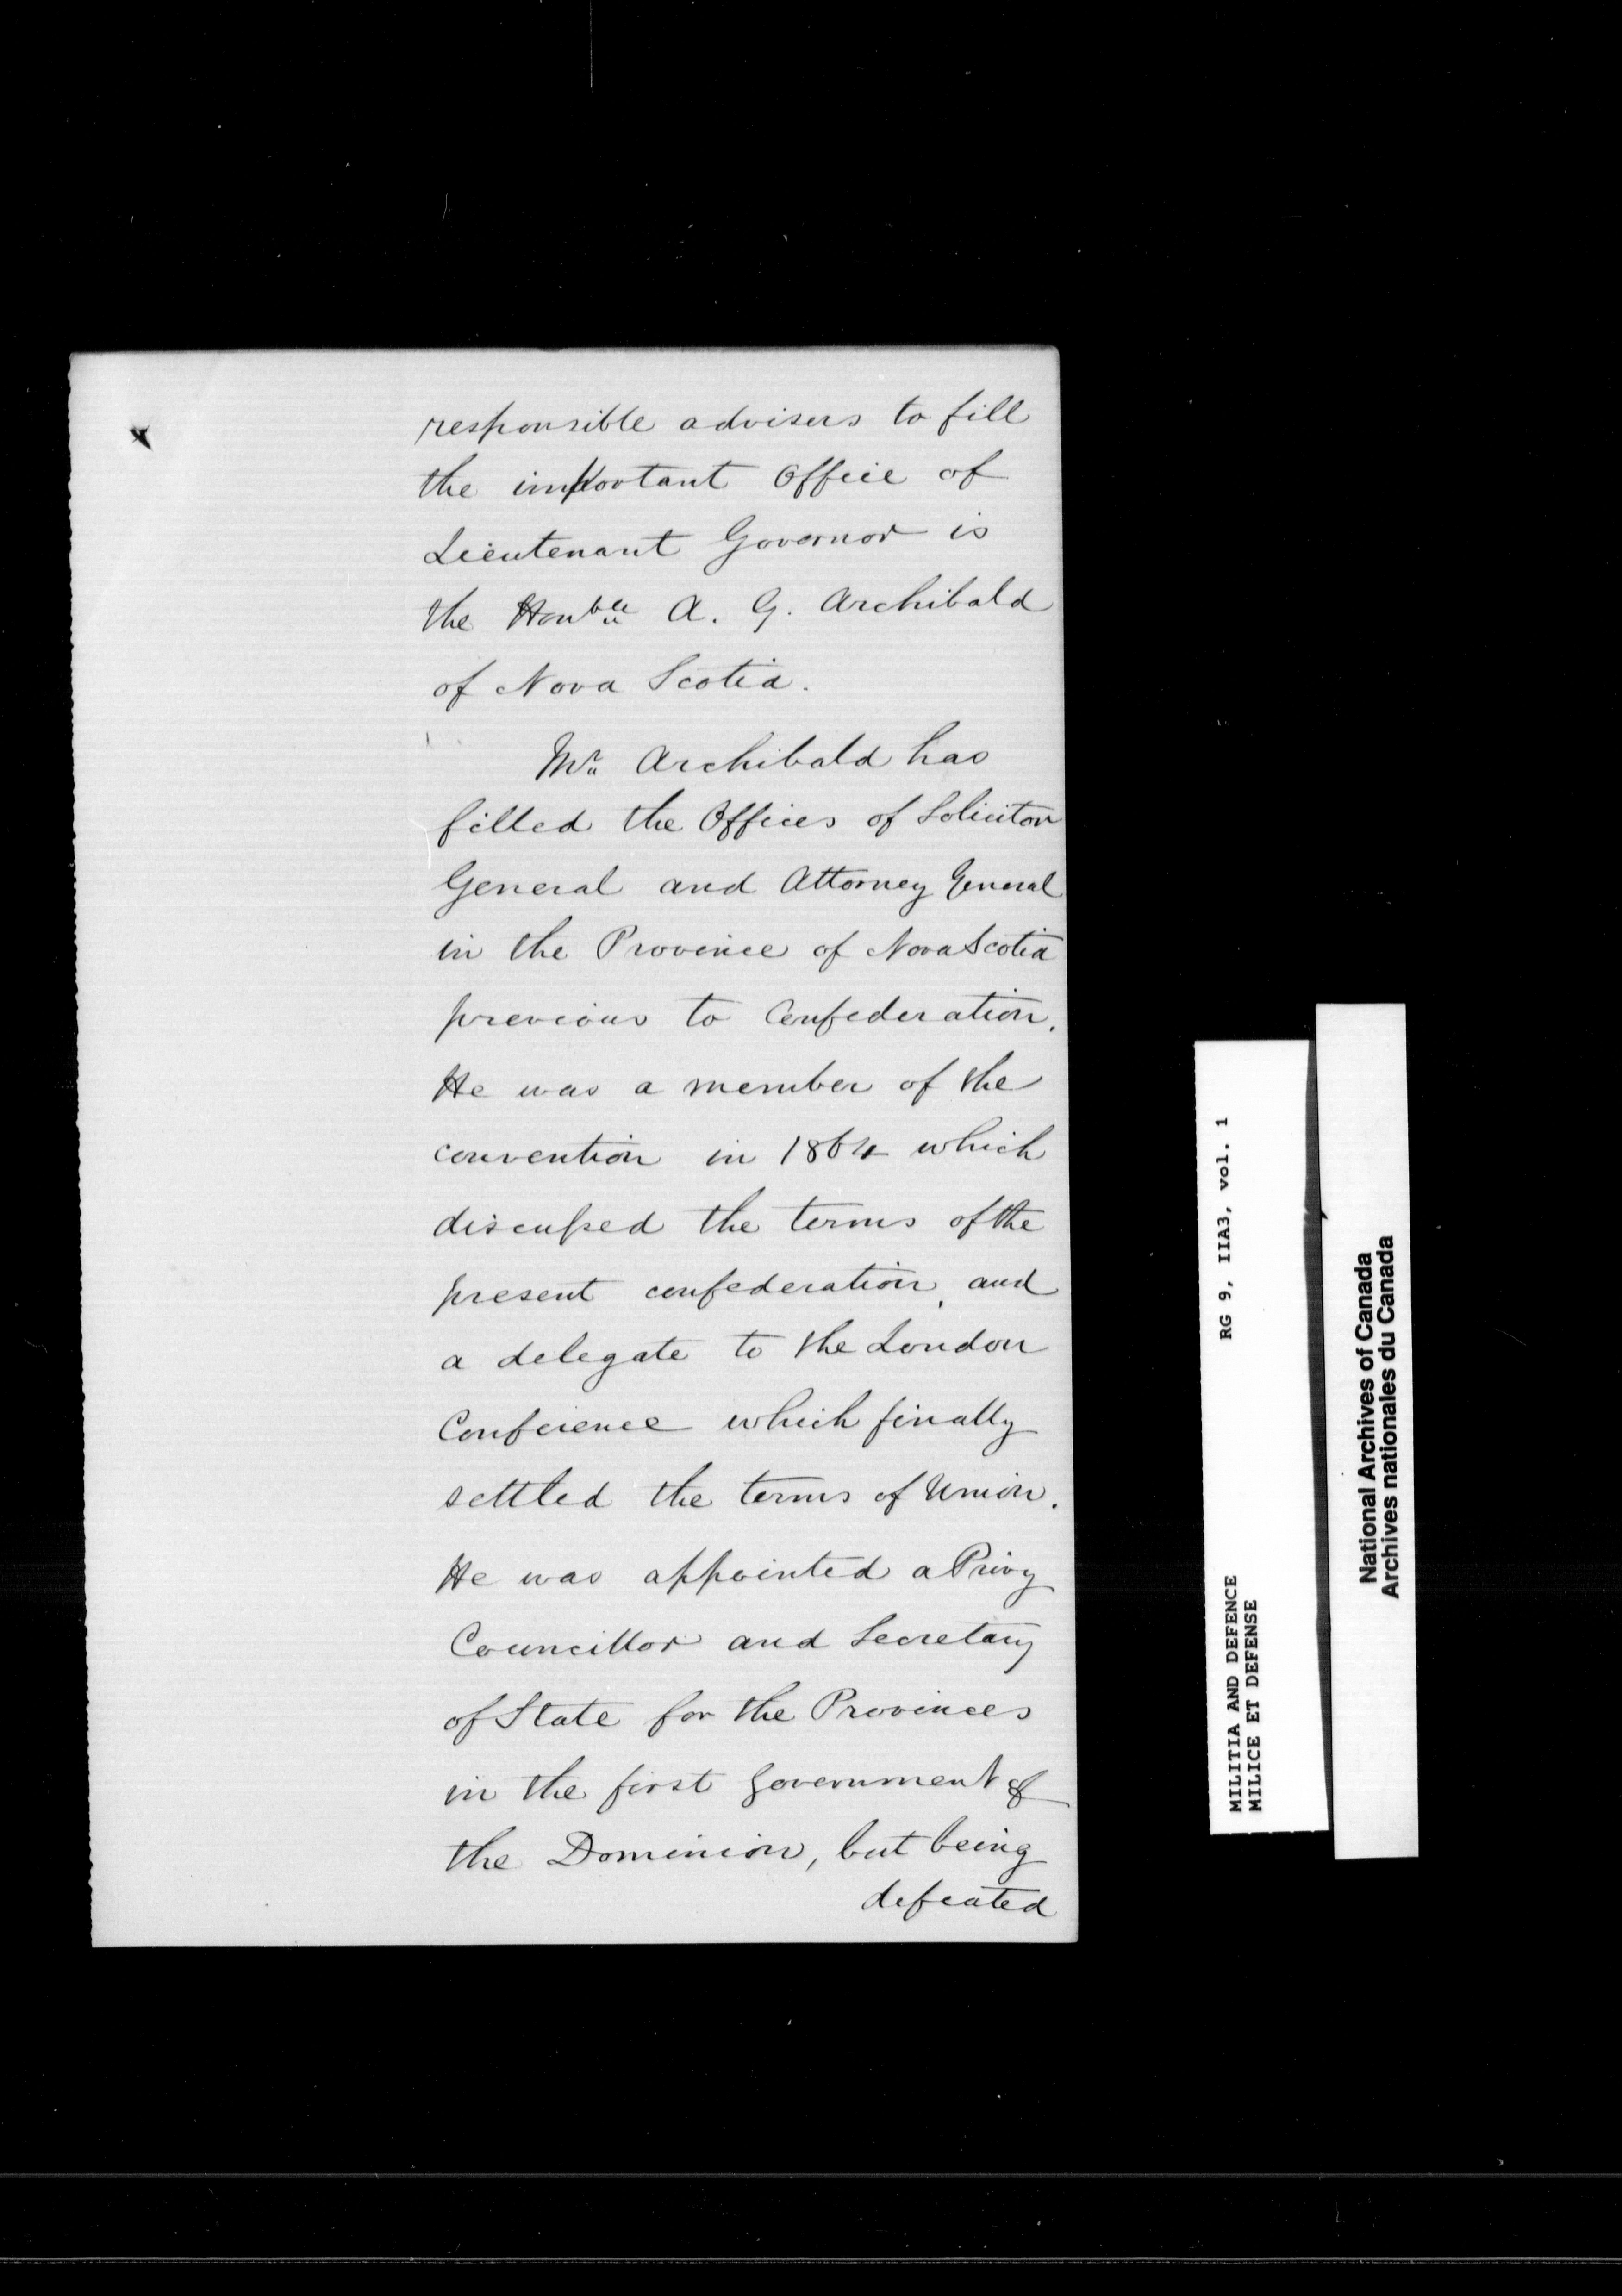 responsible advisers to fill
the important Office of
Lieutenant Governor is
the Honble A. G. Archibald
of Nova Scotia.
Mr. Archibald has
filled the Offices of Solicitor
General and Attorney General
in the Province of Nova Scotia
previous to Confederation.
He was a member of the
convention in 1864 which
discussed the terms of the
present confederation, and
a delegate to the London
Conference which finally
settled the terms of Union.
He was appointed a Privy
Councillor and Secretary
of State for the Provinces
in the first Government of
the Dominion, but being
defeated
RG 9, IIA3, vol. 1
MILITIA AND DEFENCE
MILICE ET DEFENSE
National Archives of Canada
Archives nationales du Canada